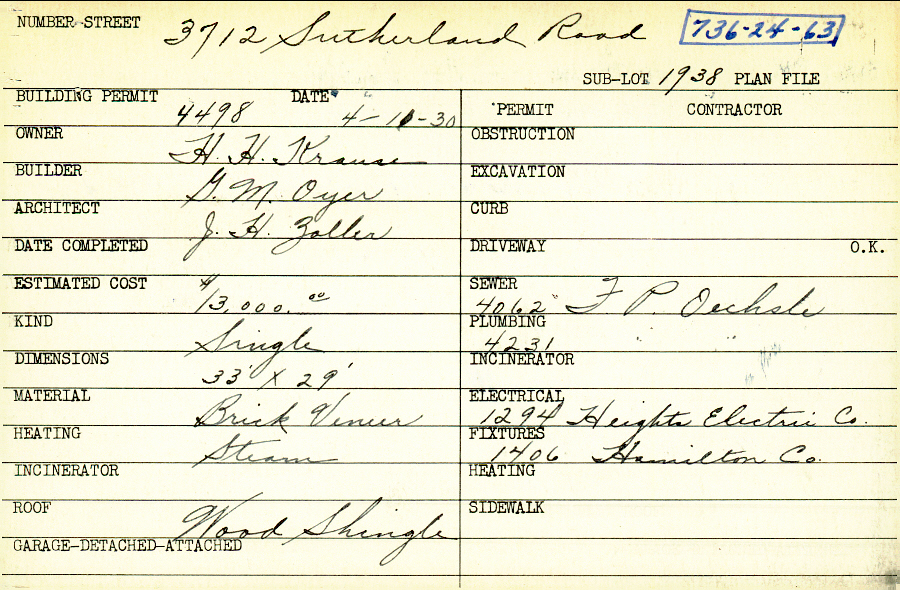 NUMBER-STREET 3712 Sutherland Road 736-24-63
SUB-LOT 1938 PLAN FILE
BUILDING PERMIT 4498 DATE 4-10-30
OWNER H. H. Krause
BUILDER G. M. Oyer
ARCHITECT J. H. Zoller
DATE COMPLETED
ESTIMATED COST $13,000.00
KIND Single
DIMENSIONS 33' X 29'
MATERIAL Brick Veneer
HEATING Steam
INCINERATOR
ROOF Wood Shingle
GARAGE-DETACHED-ATTACHED
PERMIT CONTRACTOR
OBSTRUCTION
EXCAVATION
CURB
DRIVEWAY O.K.
SEWER 4062 F. P. Oechsle
PLUMBING 4231 " "
INCINERATOR
ELECTRICAL 1294 Heights Electric Co.
FIXTURES 1406 Hamilton Co.
HEATING
SIDEWALK